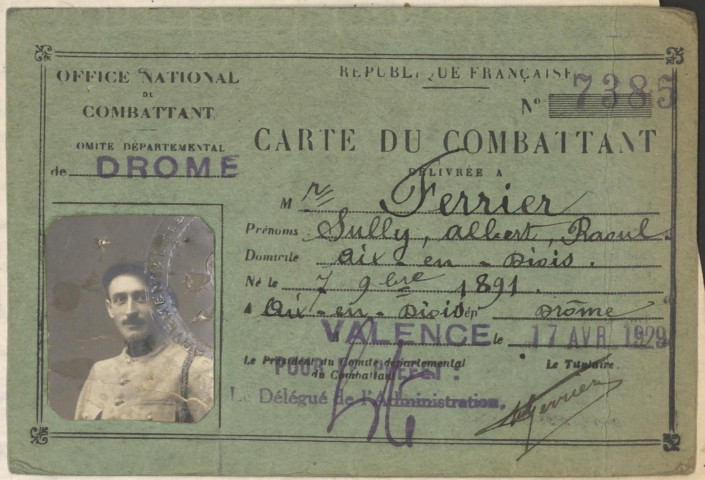 OFFICE NATIONAL
DU
COMBATTANT
OMITE DÉPARTEMENTAL
de DROME
RÉPUBLIQUE FRANÇAISE
N° 7385
CARTE DU COMBATTANT
DÉLIVRÉE A
M r Ferrier
Prénoms Sully, albert, Raoul
Domicile aix - en - Diois.
Né le 7 9bre 1891
A Aix - en - Diois dép t Drôme
VALENCE le 17 AVR 1929
Le Président du Comité départemental
du Combattant
Le Titulaire.
POUR LE PRÉFET :
Le Délégué de l'Administration,
Ferrier